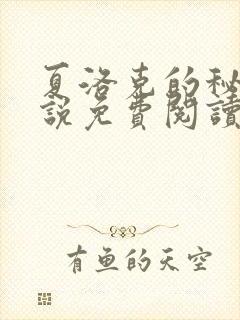 夏洛克的秘
說免費閱讀
有魚的天空